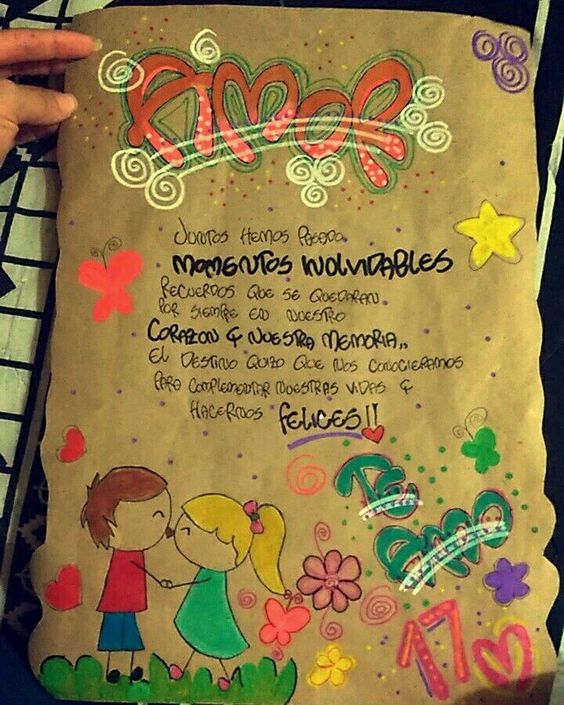 AMOR
JUNTOS HEMOS PASADO
MOMENTOS INOLVIDABLES
RECUERDOS QUE SE QUEDARAN
POR SIEMPRE EN NUESTRO
CORAZON & NUESTRA MEMORIA,,
EL DESTINO QUIZO QUE NOS CONOCIERAMOS
PARA COMPLEMENTAR NUESTRAS VIDAS &
HACERNOS FELICES!!
TE
AMO
17